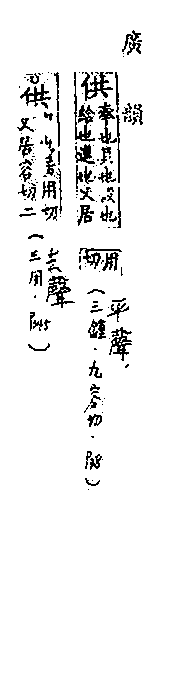 廣韻
供 奉也具也設也
給也進也又居
用切
平聲，
(三鍾．九容切．
供
用切
又居容切二
去聲
(三用．